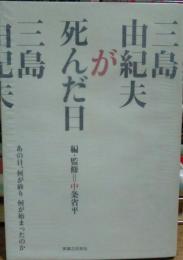 三島
由紀夫
が
死んだ日
三島
由紀夫
編・監修＝中条省平
あの日、何が終り 何が始まったのか
実業之日本社